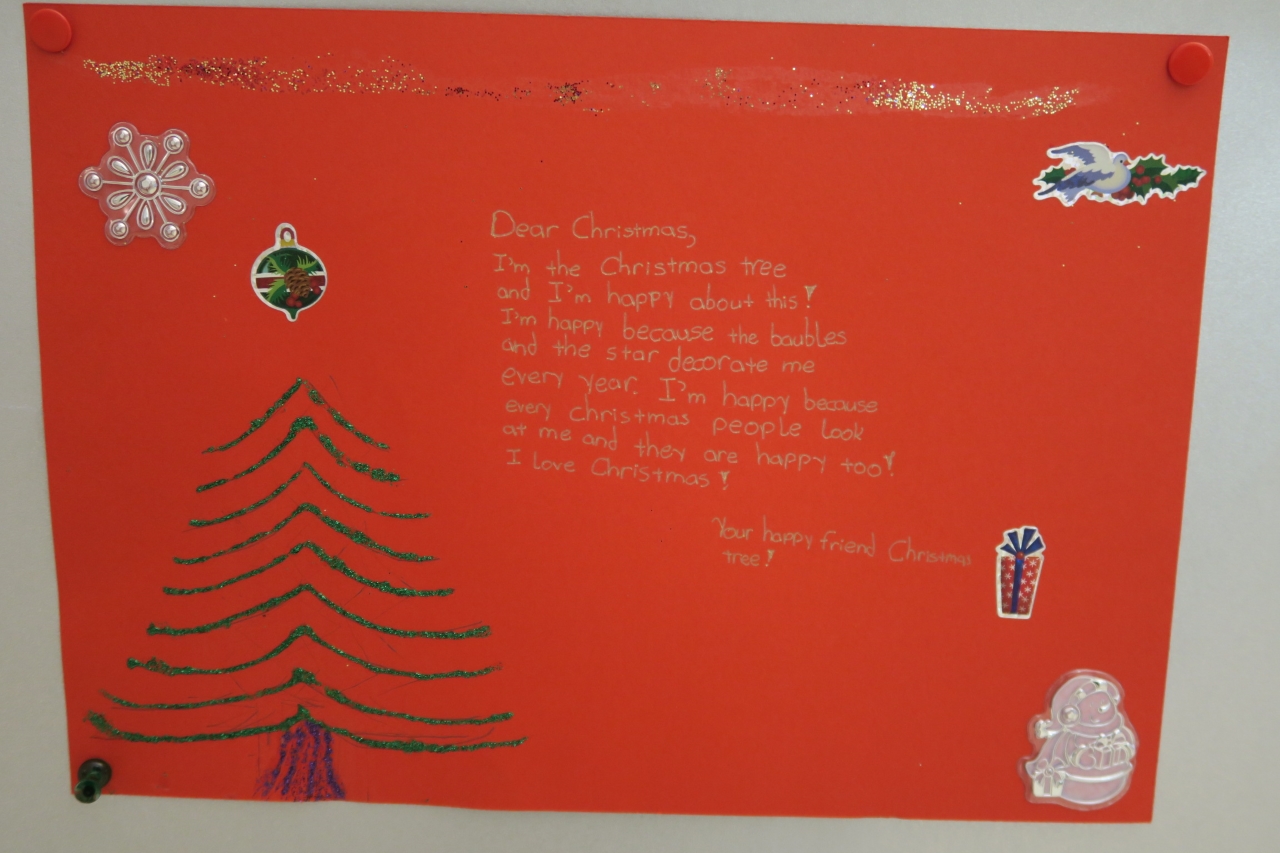 Dear Christmas,
I'm the Christmas tree
and I'm happy about this!
I'm happy because the baubles
and the star decorate me
every year. I'm happy because
every christmas people look
at me and they are happy too!
I love Christmas!
Your happy friend Christmas
tree!